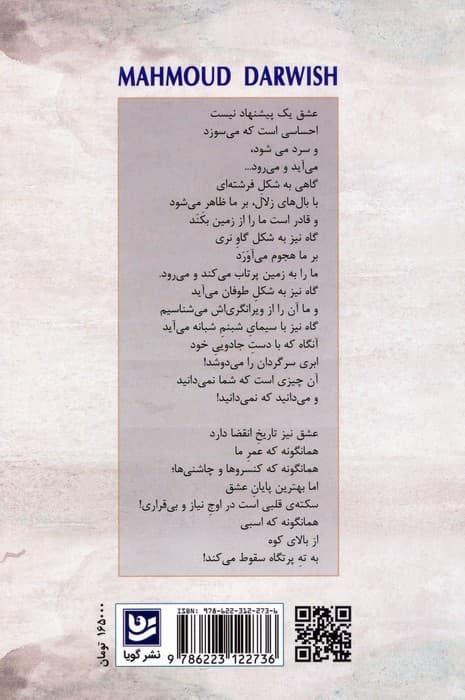 MAHMOUD DARWISH
عشق یک پیشنهاد نیست
احساسی است که می‌سوزد
و سرد می شود،
می‌آید و می‌رود...
گاهی به شکلِ فرشته‌ای
با بال‌های زلال، بر ما ظاهر می‌شود
و قادر است ما را از زمین بکَنَد
گاه نیز به شکل گاوِ نری
بر ما هجوم می‌آوَرَد
ما را به زمین پرتاب می‌کند و می‌رود.
گاه نیز به شکلِ طوفان می‌آید
و ما آن را از ویرانگری‌اش می‌شناسیم
گاه نیز با سیمایِ شبنم شبانه می‌آید
آنگاه که با دستِ جادوییِ خود
ابری سرگردان را می‌دوشد!
آن چیزی است که شما نمی‌دانید
و می‌دانید که نمی‌دانید!
عشق نیز تاریخِ انقضا دارد
همانگونه که عمرِ ما
همانگونه که کنسروها و چاشنی‌ها؛
اما بهترین پایانِ عشق
سکته‌ی قلبی است در اوجِ نیاز و بی‌قراری!
همانگونه که اسبی
از بالای کوه
به تهِ پرتگاه سقوط می‌کند!
ISBN: 978-622-312-273-6
9 786223 122736
نشر گویا
۱۶۵۰۰۰ تومان